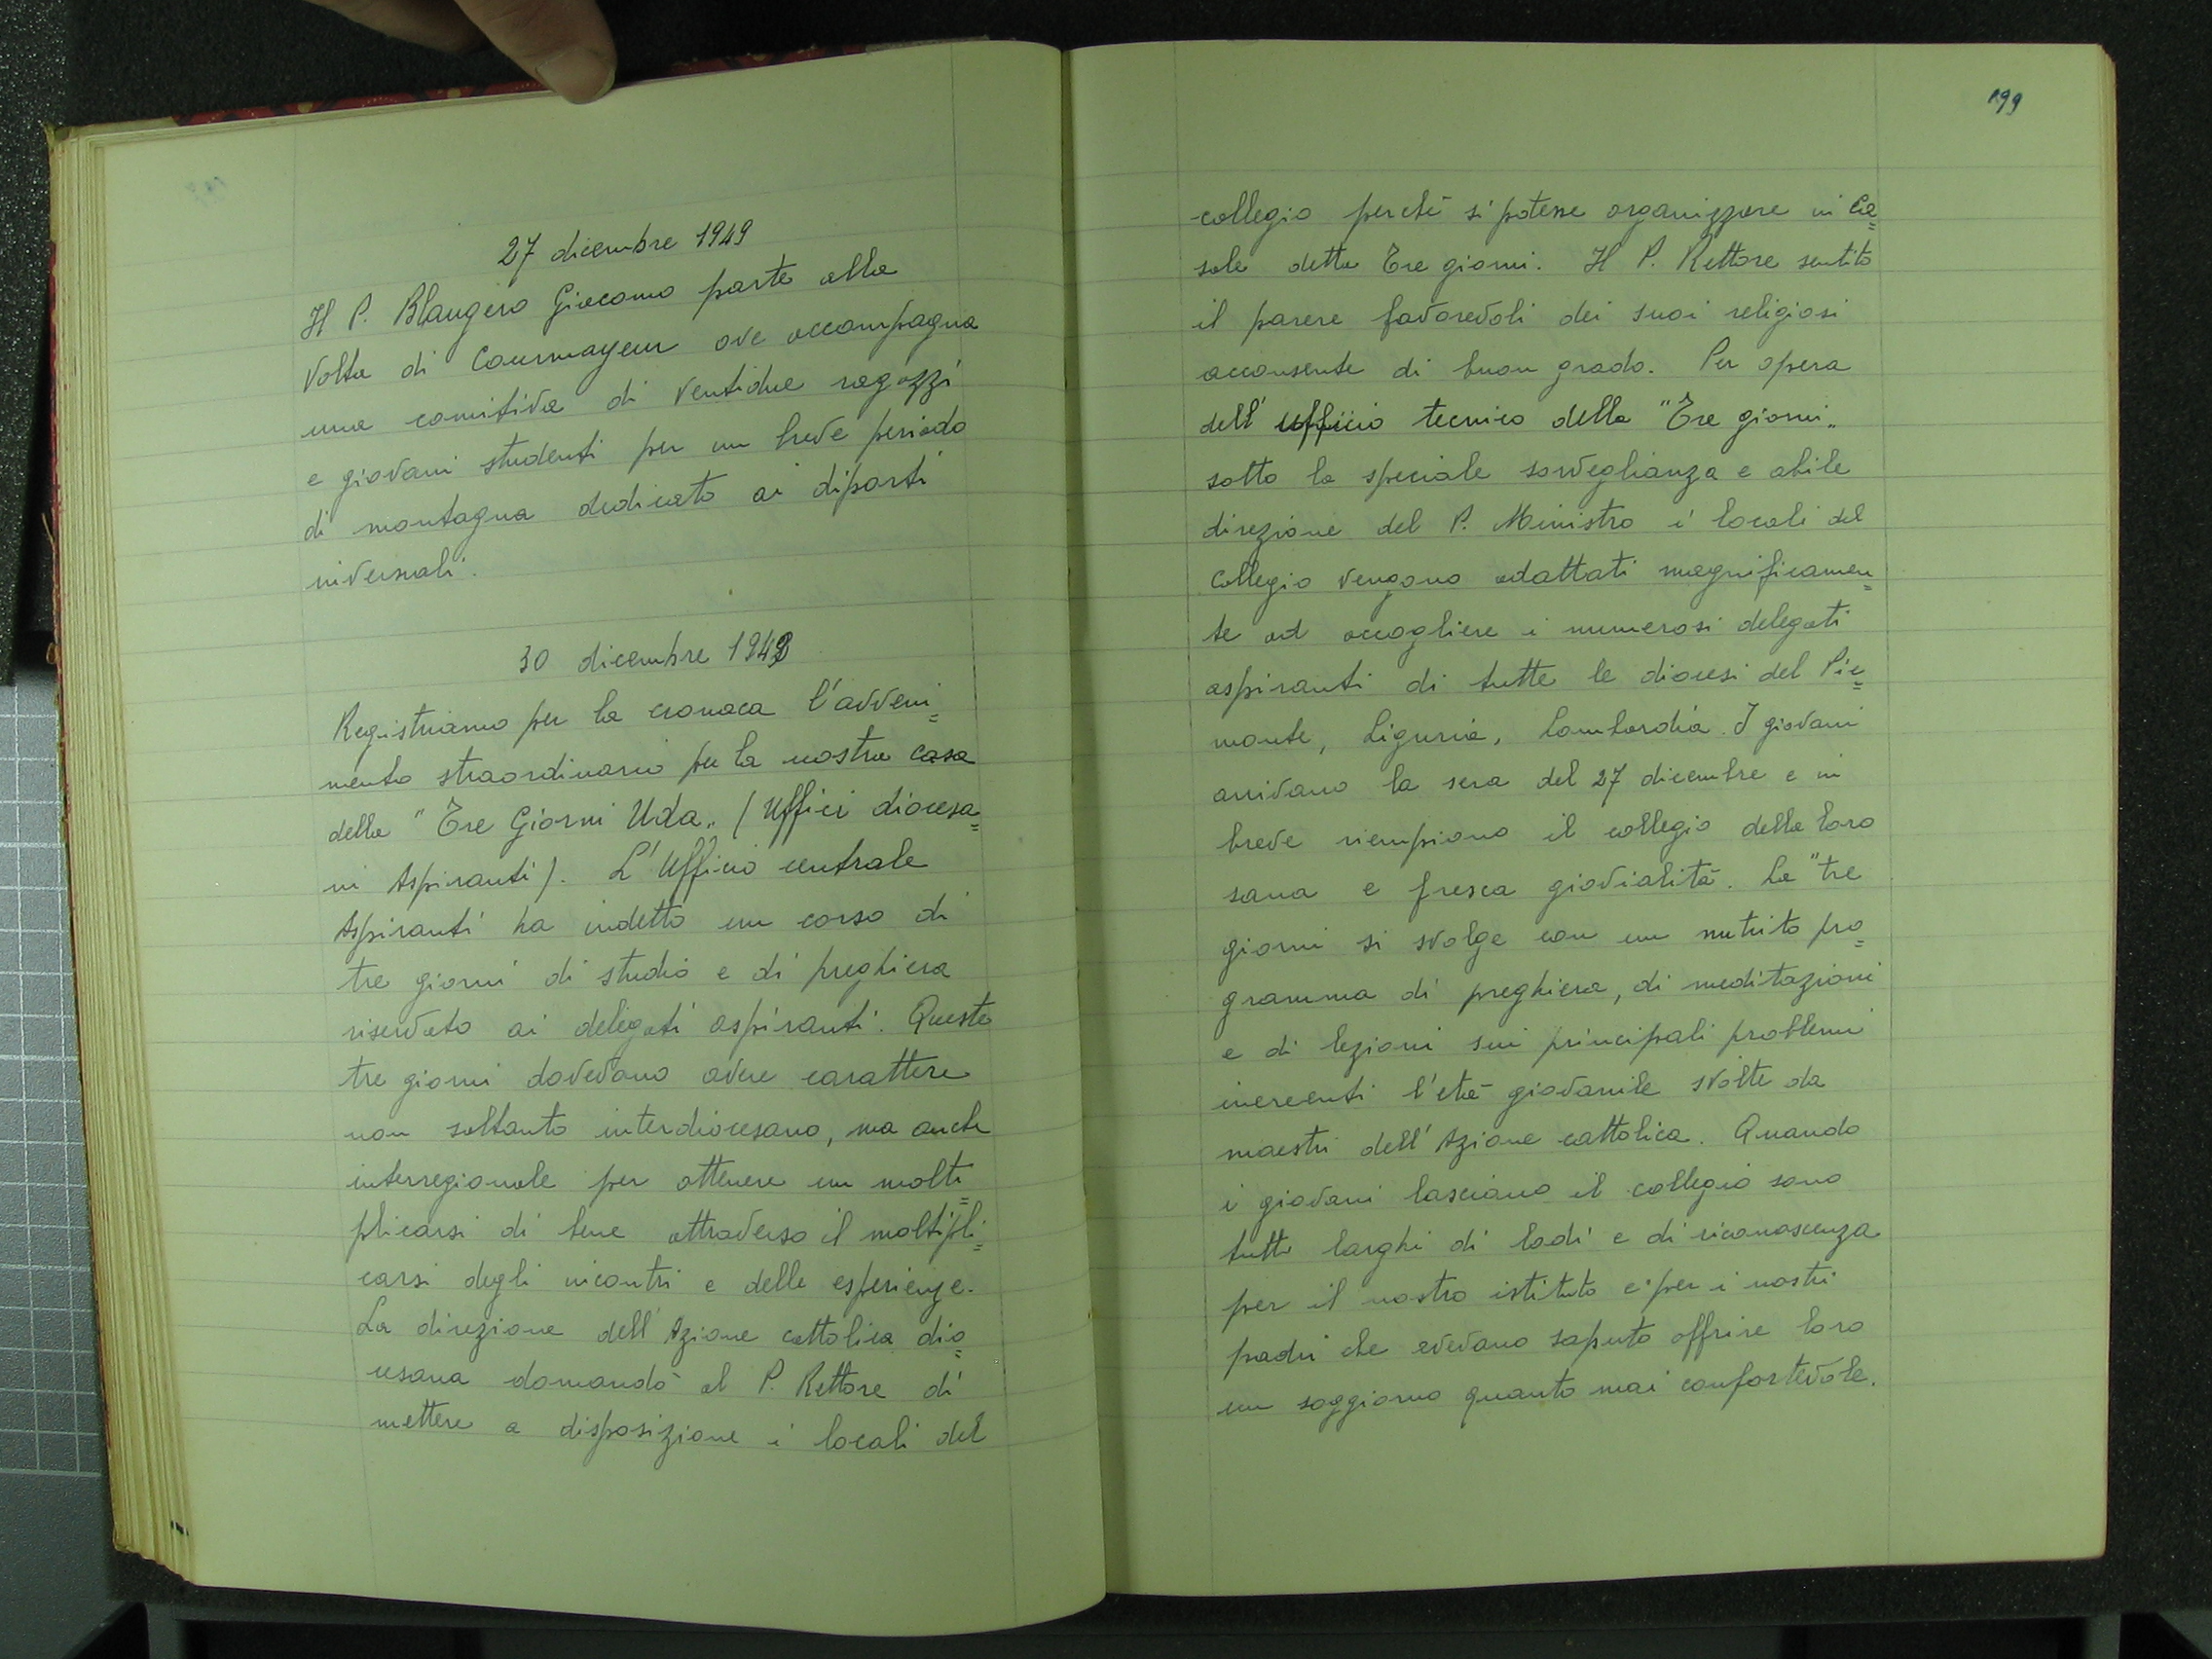 27 dicembre 1949
Il P. Blangero Giacomo parte alla
volta di Courmayeur ove accompagna
una comitiva di ventidue ragazzi
e giovani studenti per un breve periodo
di montagna dedicato ai diporti
invernali.
30 dicembre 1949
Registriamo per la cronaca l'avveni=
mento straordinario per la nostra casa
della "Tre Giorni Uda„ (Uffici diocesa=
ni Aspiranti). L'Ufficio centrale
Aspiranti ha indetto un corso di
tre giorni di studio e di preghiera
riservato ai delegati aspiranti. Questa
tre giorni dovevano avere carattere
non soltanto interdiocesano, ma anche
interregionale per ottenere un molti=
plicarsi di bene attraverso il moltipli=
carsi degli incontri e delle esperienze.
La direzione dell'Azione cattolica dio=
cesana domandò al P. Rettore di
mettere a disposizione i locali del
199
collegio perchè si potesse organizzare in Ca=
sale detta Tre giorni. Il P. Rettore sentito
il parere favorevoli dei suoi religiosi
acconsente di buon grado. Per opera
dell'ufficio tecnico della "Tre giorni„
sotto la speciale sorveglianza e abile
direzione del P. Ministro i locali del
Collegio vengono adattati magnificamen=
te ad accogliere i numerosi delegati
aspiranti di tutte le diocesi del Pie=
monte, Liguria, Lombardia. I giovani
arrivano la sera del 27 dicembre e in
breve riempiono il collegio della loro
sana e fresca giovialità. La "tre
giorni si svolge con un nutrito pro=
gramma di preghiera, di meditazioni
e di lezioni sui principali problemi
inerenti l'età giovanile svolte da
maestri dell'Azione cattolica. Quando
i giovani lasciano il collegio sono
tutti larghi di lodi e di riconoscenza
per il nostro istituto e per i nostri
padri che avevano saputo offrire loro
un soggiorno quanto mai confortevole.